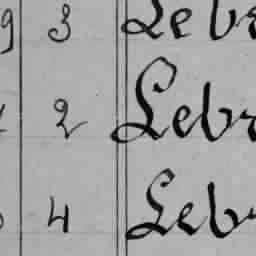 9 3 Lebr
2 Lebr
4 Lebr